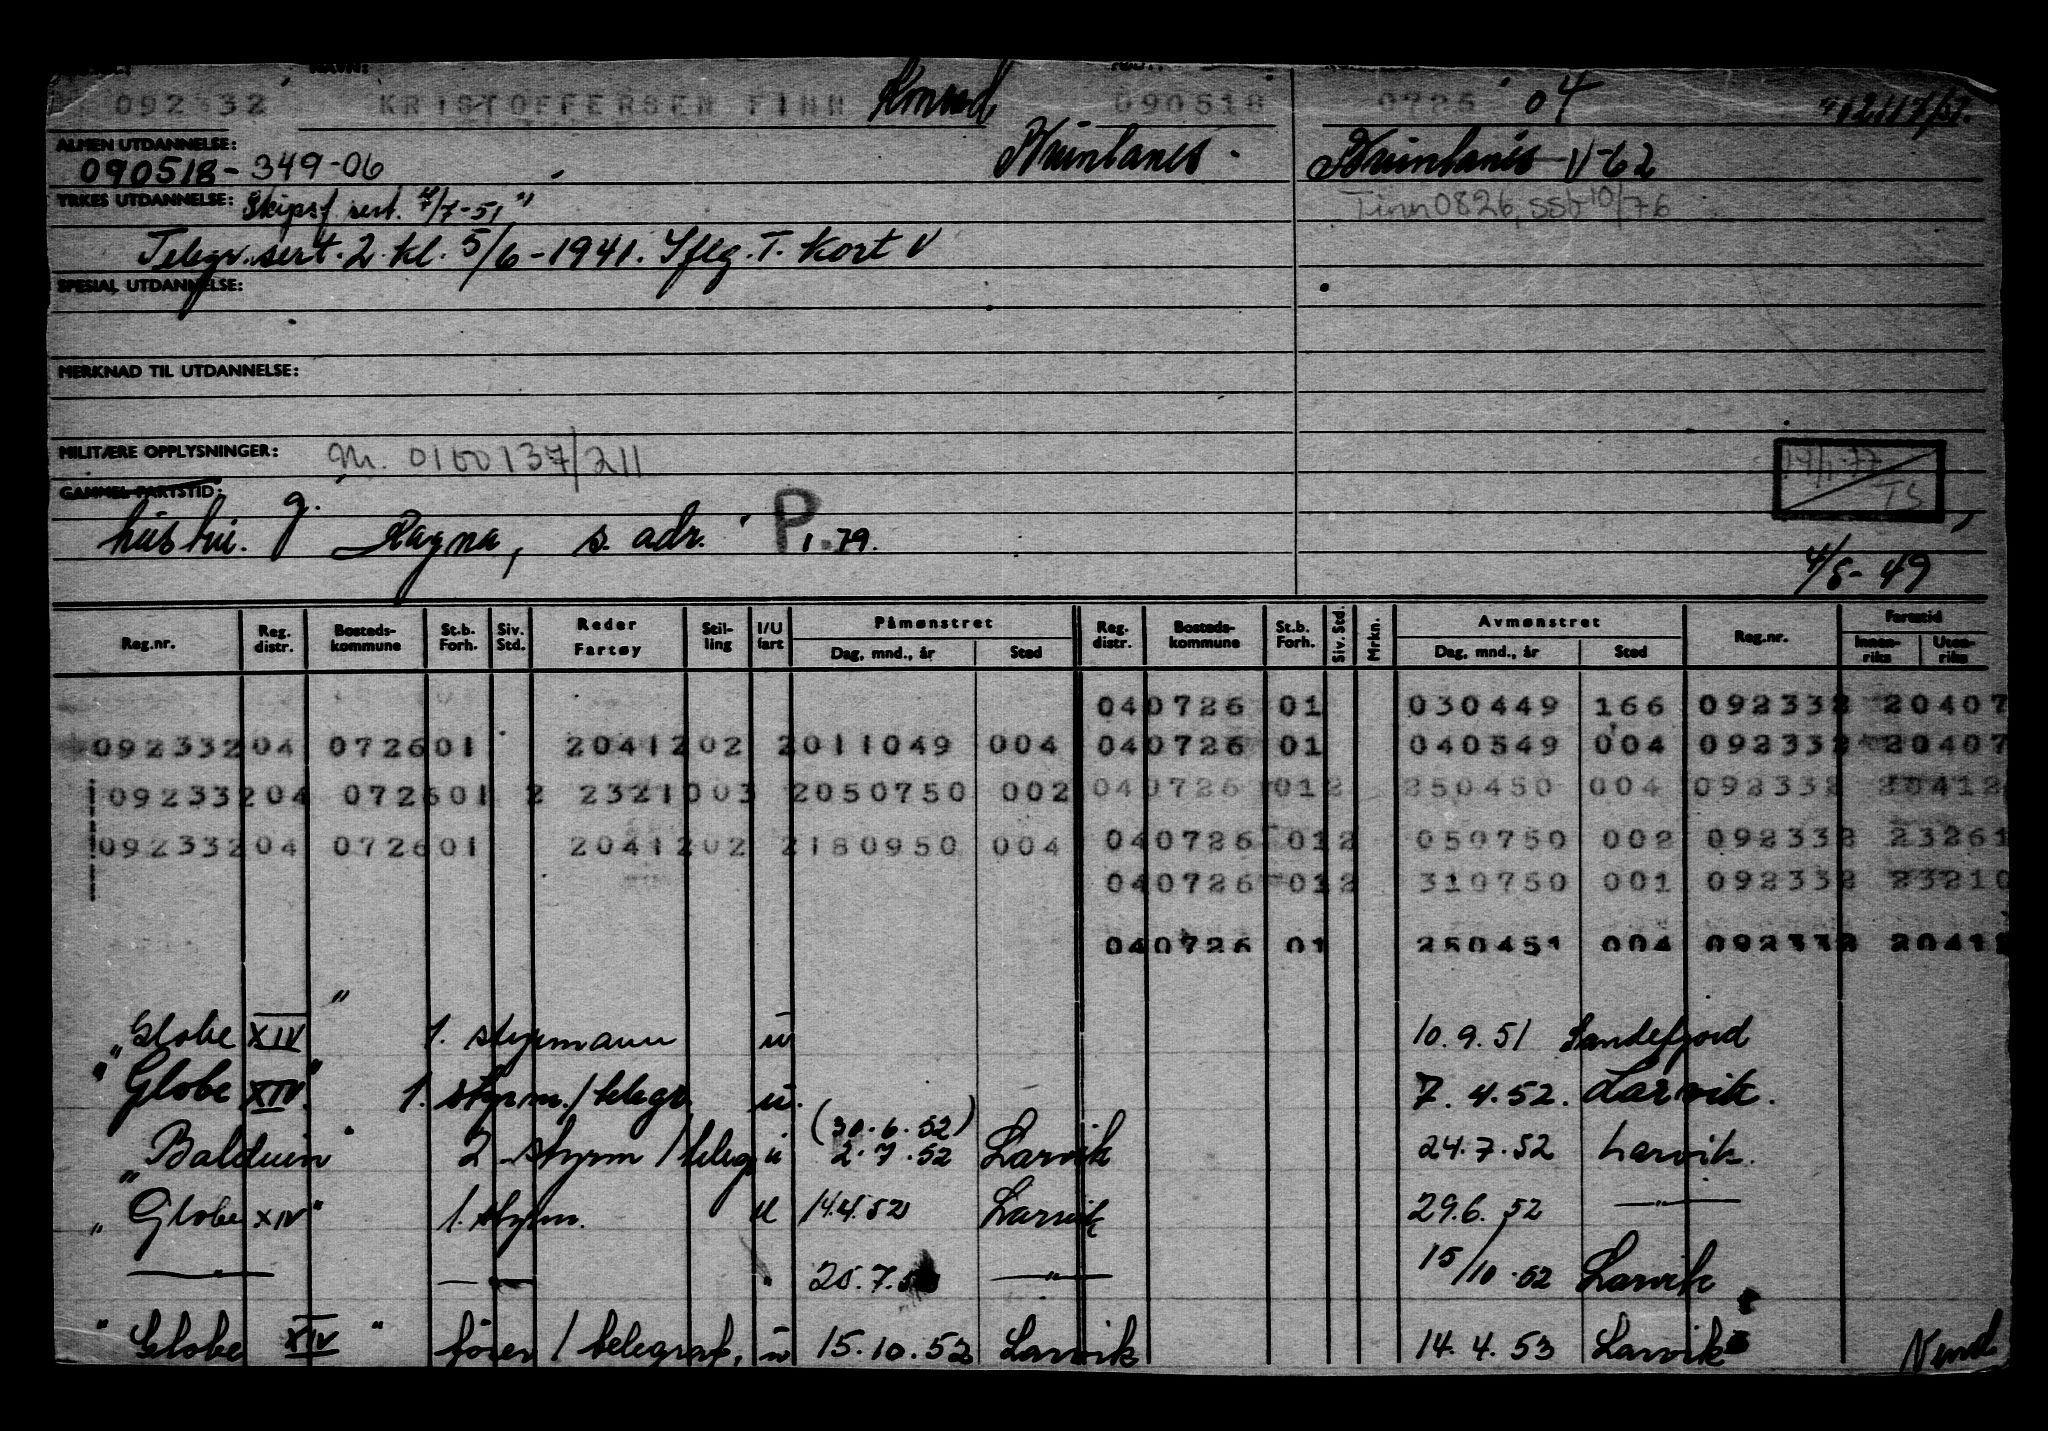 092332 KRISTOFFERSEN FINN Konrad 090518 0726 04
ALMEN UTDANNELSE:
090518-349-06 Brunlanes. Brunlanes V-62
YRKES UTDANNELSE: Skipsf. sert. 4/7-51 Tinn 0826, ssb 10/76
Telegr.sert. 2. kl. 5/6-1941. Iflg. T. Kort V
SPESIAL UTDANNELSE:
MERKNAD TIL UTDANNELSE:
MILITÆRE OPPLYSNINGER: Nr. 0160137/211
19/1-77 TS
GAMMEL FARTSTID:
hustru. g. Ragna, s. adr. P 1.79.
4/8-49
Reg.nr. Reg. distr. Bosteds-kommune St.b. Forh. Siv. Std. Reder Fartøy Stil-ling I/U fart Påmønstret Dag, mnd., år Sted Reg. distr. Bosteds-kommune St.b. Forh. Siv. Std. Mrkn. Avmønstret Dag, mnd., år Sted Reg.nr. Fartstid Innen-riks Uten-riks
040726 01 030449 166 092332 20407
092332 04 0726 01 20412 02 2 011049 004 040726 01 040549 004 092332 20407
092332 04 0726 01 2 23210 03 2 050750 002 040726 012 250450 004 092332 20412
092332 04 0726 01 20412 02 2 180950 004 040726 012 050750 002 092332 23261
040726 012 310750 001 092332 23210
040726 01 250451 004 092332 20412
"Globe XIV" 1. styrmann u 10.9.51 Sandefjord
"Globe XIV" 1. styrm./telegr. u. 7.4.52. Larvik.
(30.6.52)
"Balduin" 2. styrm/teleg u 2.7.52 Larvik 24.7.52 Larvik.
"Globe XIV" 1. styrm. u 14.4.52 Larvik 29.6.52 —"—
—"— —"— " 25.7.52 —"— 15/10.52 Larvik
"Globe XIV" fører/telegraf. u 15.10.52 Larvik 14.4.53 Larvik Vend